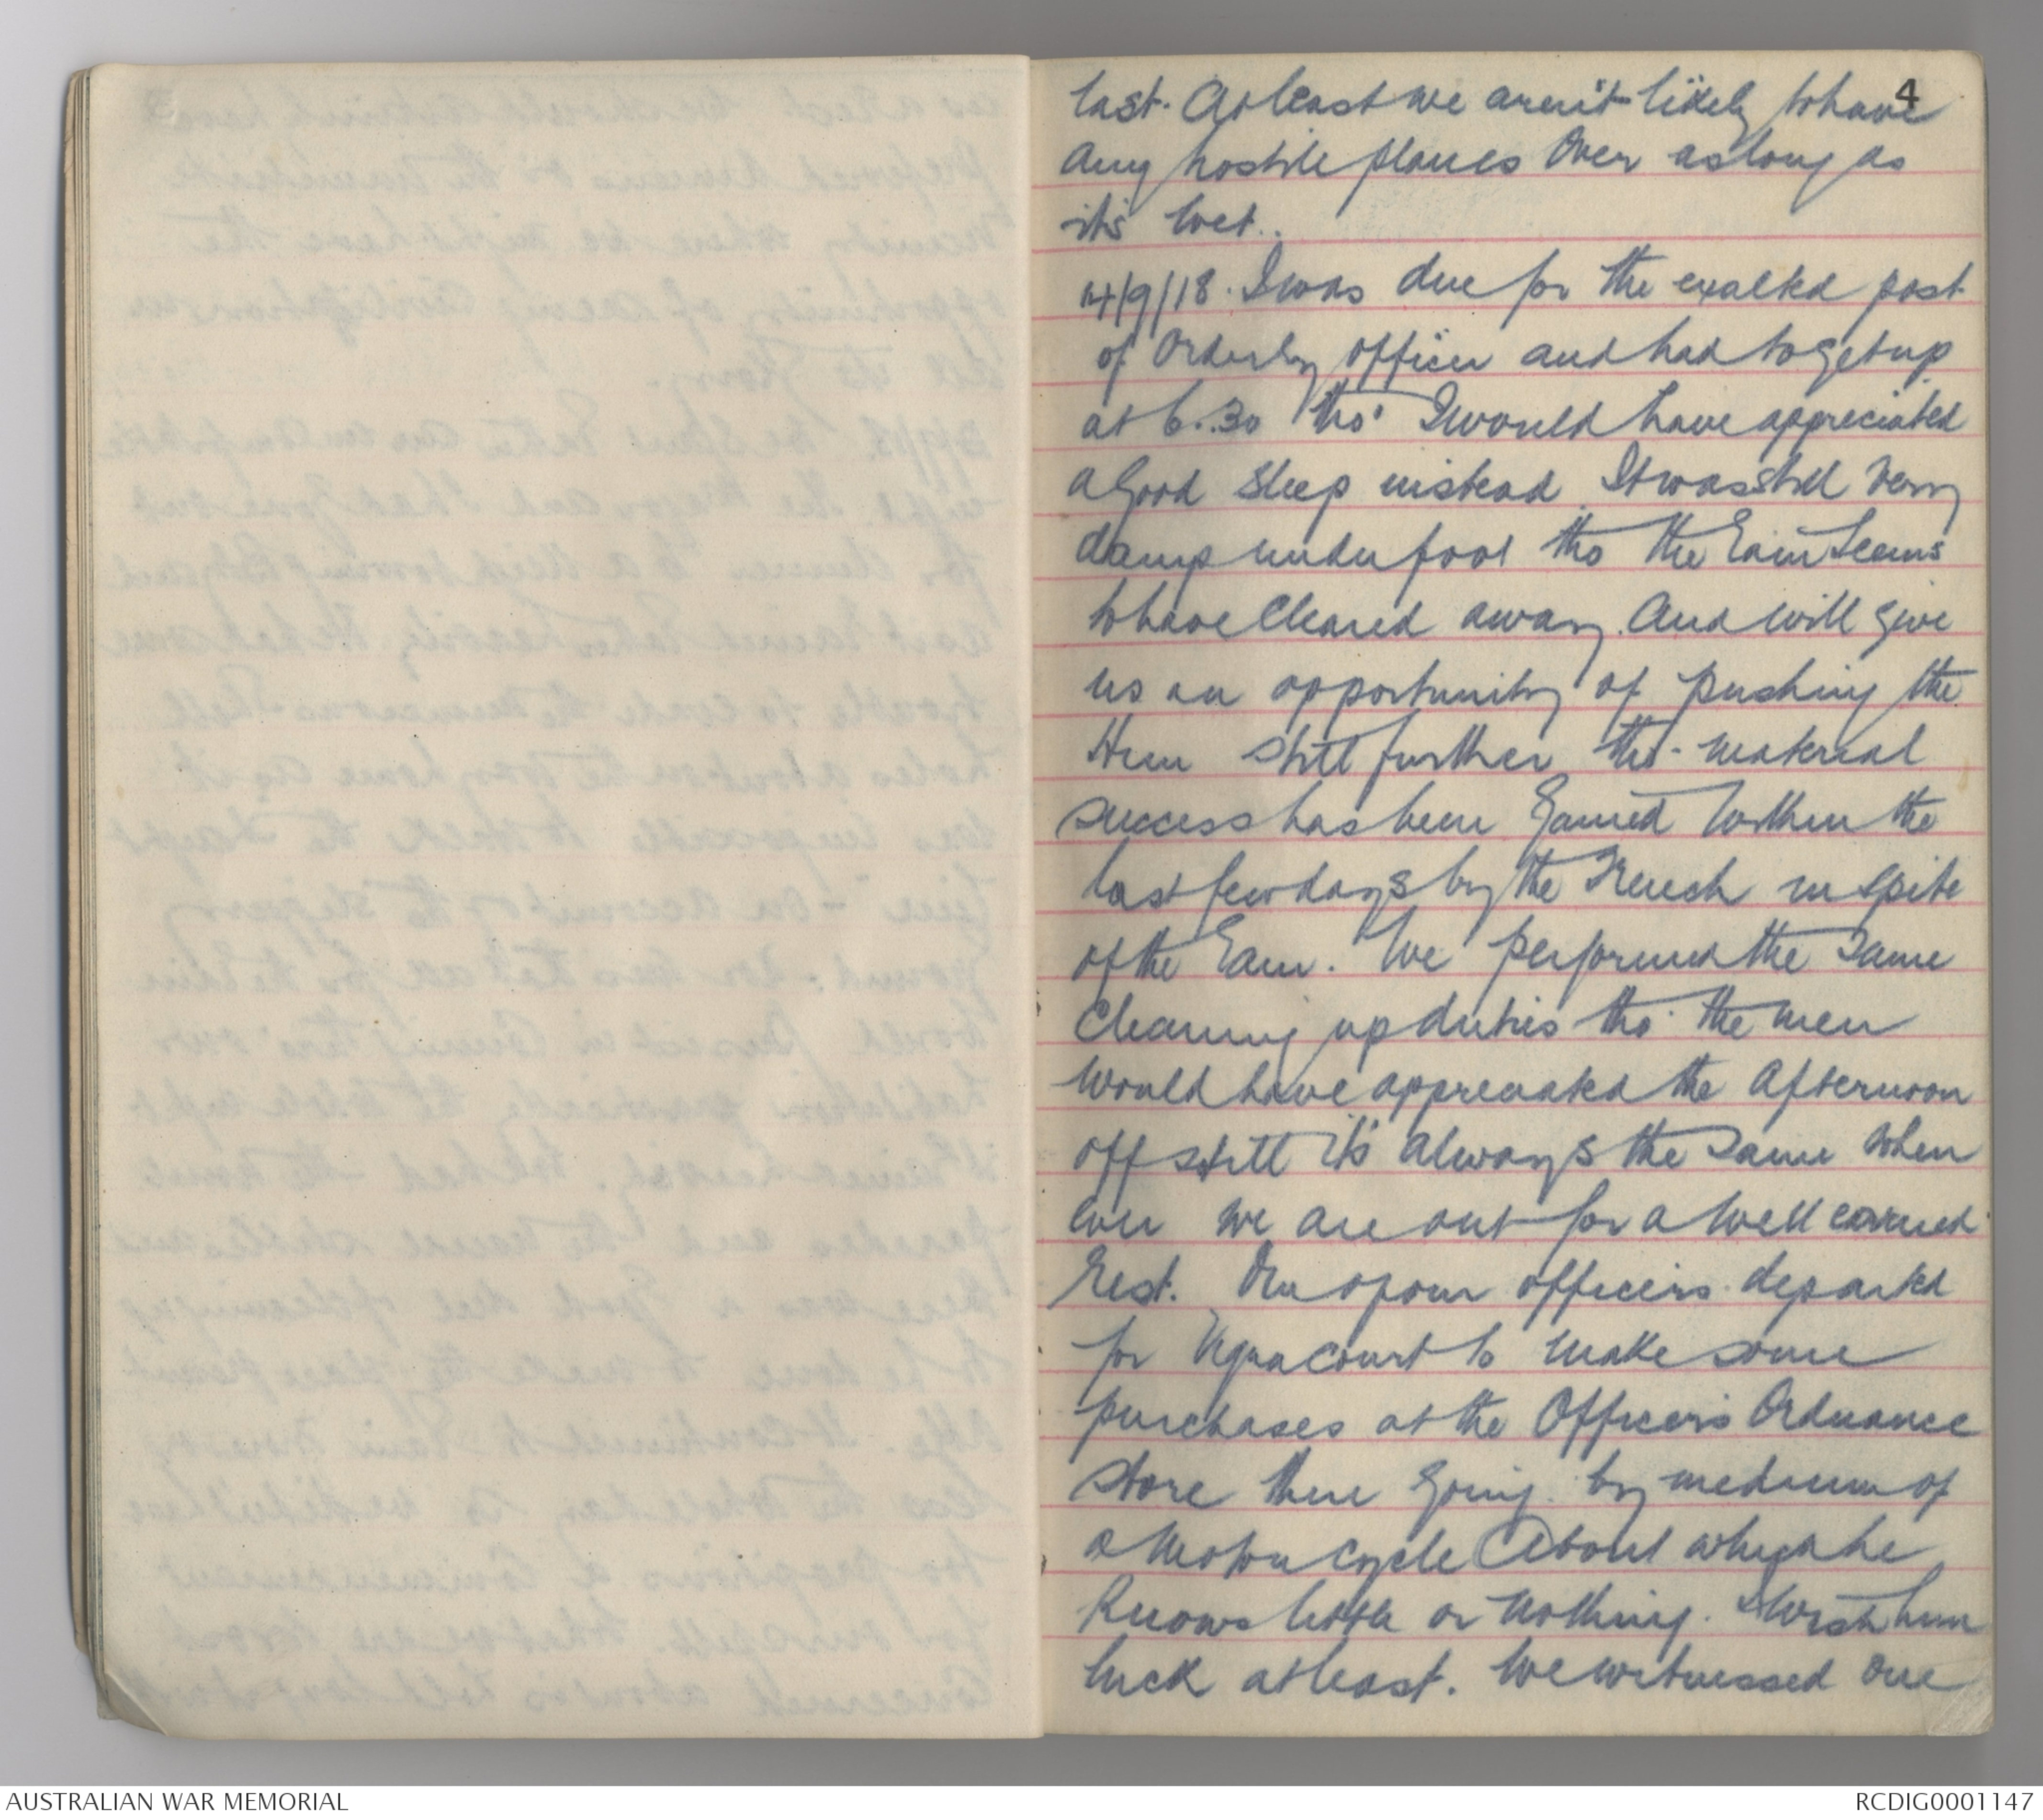 4
last. At least we aren't likely to have
any hostile planes over as long as
it's wet..
14/9/18. I was due for the exalted post
of Orderly officer and had to get up
at 6.30 tho' I would have appreciated
a good sleep instead. It was still very
damp underfoot tho the rain seems
to have cleared away. And will give
us an opportunity of pushing the
Hun still further tho - material
success has been gained within the
last few days by the French in spite
of the rain. We performed the same
cleaning up duties tho' the men
would have appreciated the afternoon
off still it's always the same when
ever we are out for a well earned
rest. One of our officers departed
for Vignacourt to make some
purchases at the Officers Ordnance
store there going by medium of
a motor cycle about which he
knows little or nothing. I wish him
luck at least. We witnessed one
AUSTRALIAN WAR MEMORIAL
RCDIG0001147